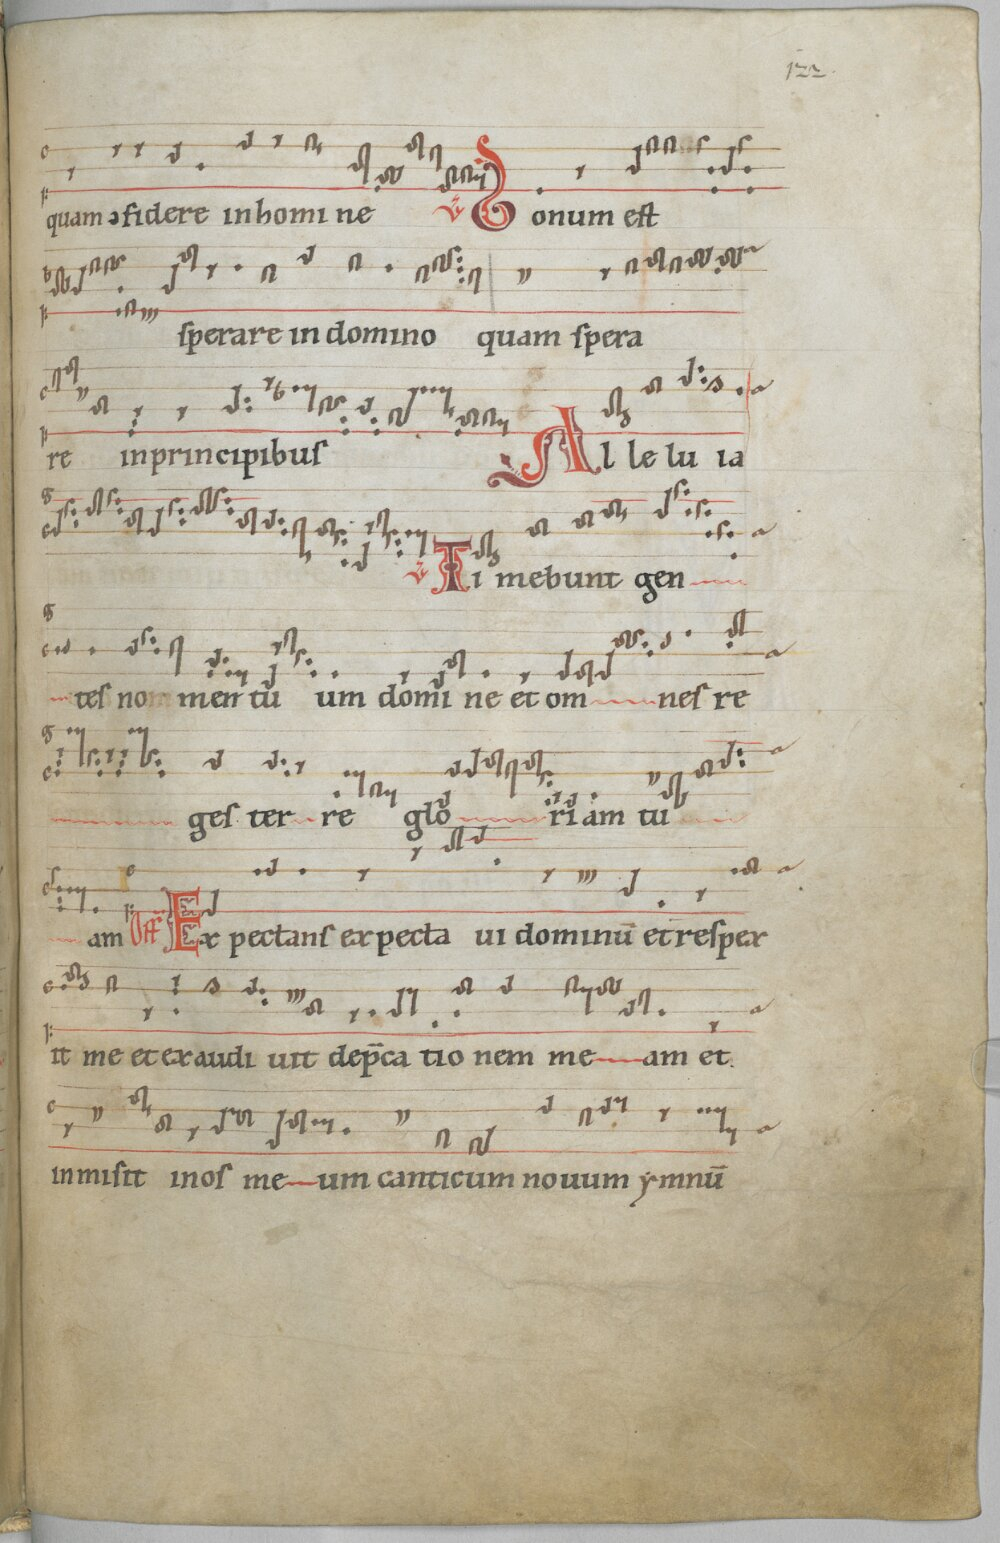 122.
quam ɔfidere in homi ne ℣ Bonum est
sperare in domino quam spera
re in principibus Al le lu ia
℣ Ti mebunt gen
tes no men tū um domi ne et om nes re
ges ter re glo ri am tu
am Off Ex pectans expecta ui dominū et respex
it me et exaudi uit dep̄ca tio nem me am et
inmisit in os me um canticum nouum ẏmnū